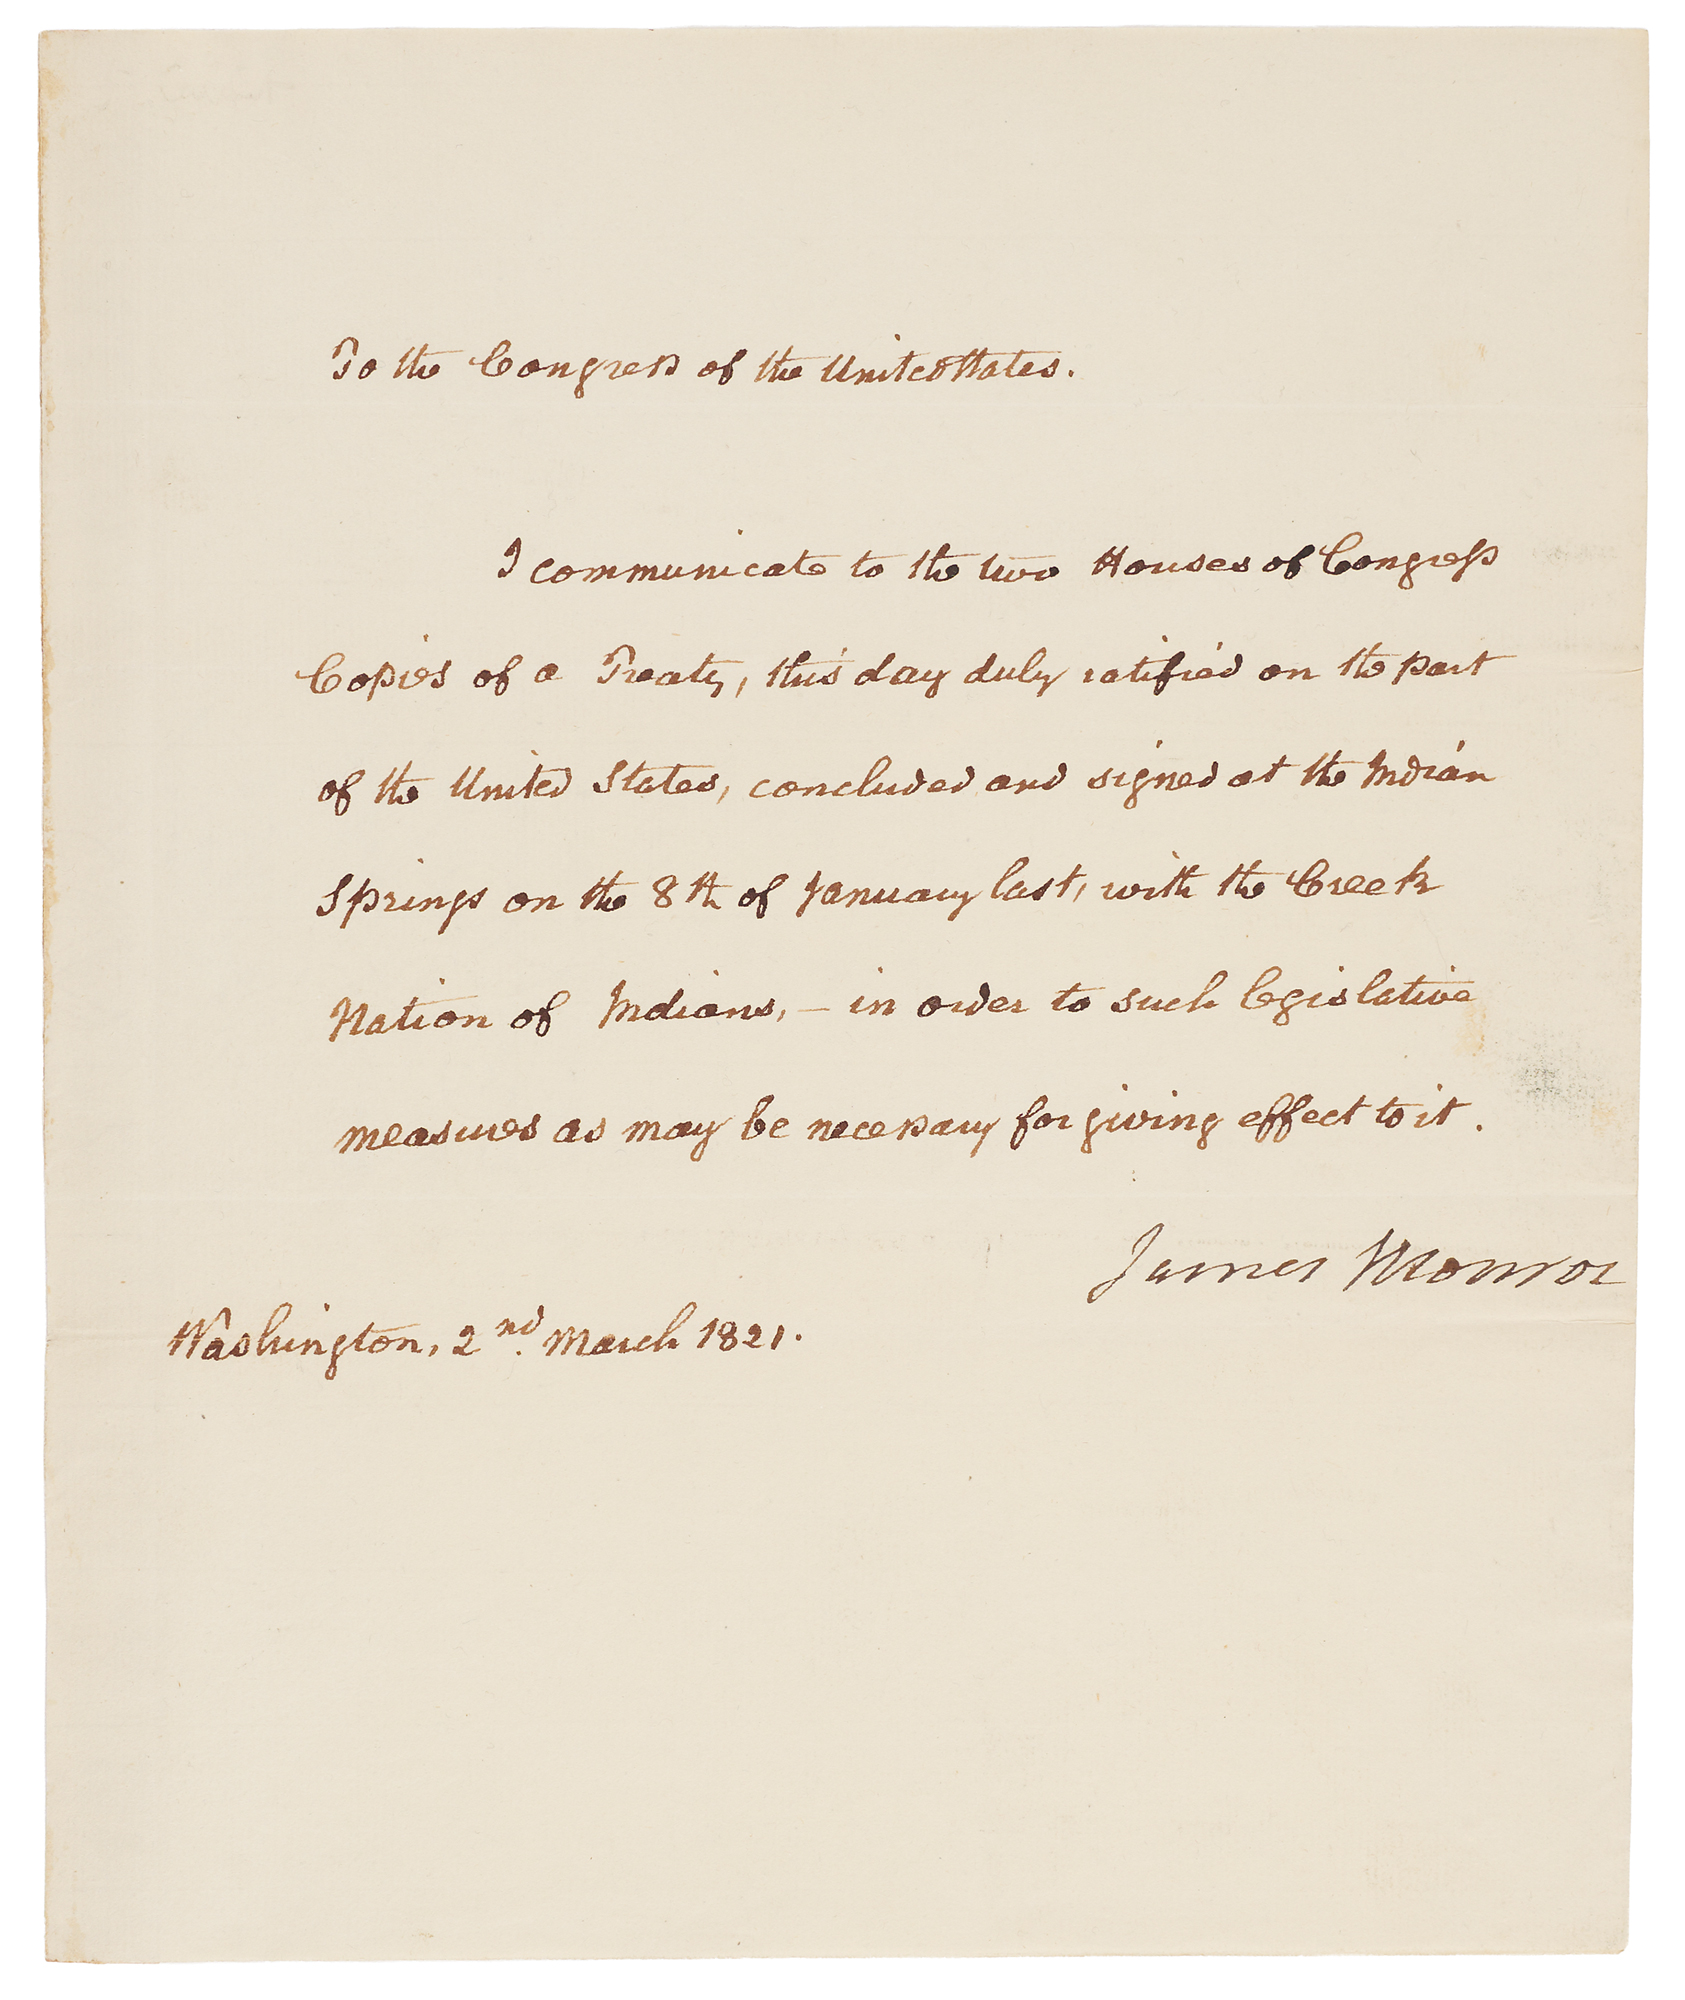 To the Congress of the United States.
I communicate to the two Houses of Congress
Copies of a Treaty, this day duly ratified on the part
of the United States, concluded and signed at the Indian
Springs on the 8th of January last, with the Creek
Nation of Indians, – in order to such legislative
measures as may be necessary for giving effect to it.
James Monroe
Washington, 2nd. March 1821.